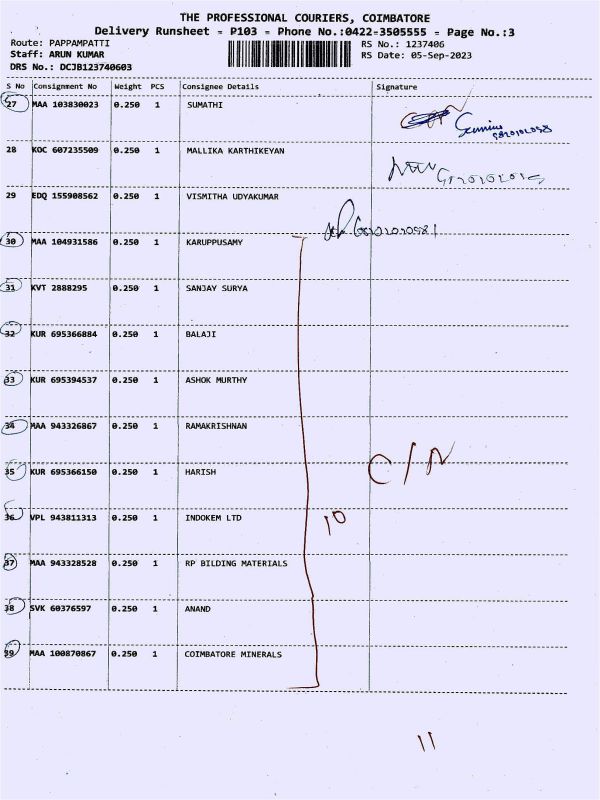 THE PROFESSIONAL COURIERS, COIMBATORE
Delivery Runsheet = P103 = Phone No.:0422-3505555 = Page No.:3
Route: PAPPAMPATTI
Staff: ARUN KUMAR
DRS No.: DCJB123740603
RS No.: 1237406
RS Date: 05-Sep-2023
S No Consignment No Weight PCS Consignee Details Signature
27 MAA 103830023 0.250 1 SUMATHI
28 KOC 607235509 0.250 1 MALLIKA KARTHIKEYAN
29 EDQ 155908562 0.250 1 VISMITHA UDYAKUMAR
30 MAA 104931586 0.250 1 KARUPPUSAMY
31 KVT 2888295 0.250 1 SANJAY SURYA
32 KUR 695366884 0.250 1 BALAJI
33 KUR 695394537 0.250 1 ASHOK MURTHY
34 MAA 943326867 0.250 1 RAMAKRISHNAN
C/N
35 KUR 695366150 0.250 1 HARISH
36 VPL 943811313 0.250 1 INDOKEM LTD 10
37 MAA 943328528 0.250 1 RP BILDING MATERIALS
38 SVK 60376597 0.250 1 ANAND
39 MAA 100870867 0.250 1 COIMBATORE MINERALS
11